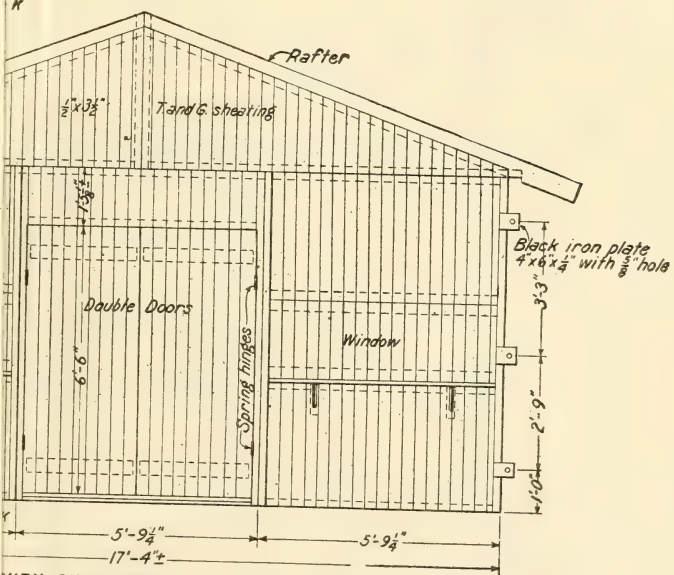 K
Rafter
1/2" x 3 1/2"
T. and G. sheating
1'-5 1/8"±
Black iron plate
4"x6"x1/4" with 5/8" hole
3'-3"
Double Doors
Window
6'-6"
Spring hinges
2'-9"
1'-0"
5'-9 1/4"
5'-9 1/4"
17'-4"±